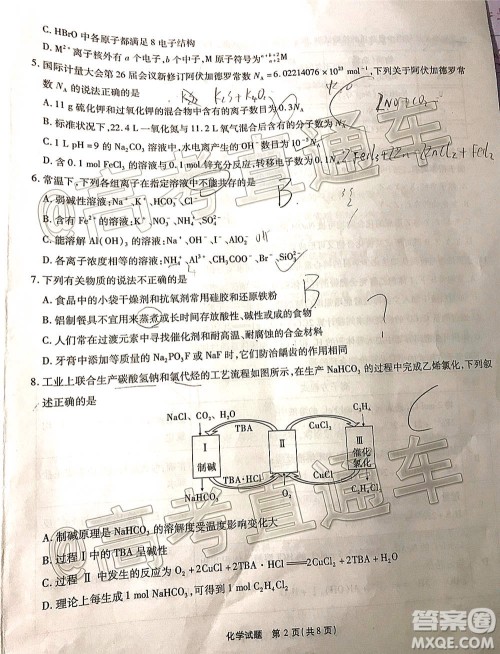 C. HBrO 中各原子都满足 8 电子结构
D. M²⁺ 离子核外有 a 个电子,b 个中子,M 原子符号为 ᵃ⁺ᵇ⁺²ₐ₊₂M
5. 国际计量大会第 26 届会议新修订阿伏加德罗常数 N_A=6.02214076×10²³ mol⁻¹。下列关于阿伏加德罗常
数 N_A 的说法正确的是
A. 11 g 硫化钾和过氧化钾的混合物中含有的离子数目为 0.3N_A
B. 标准状况下,22.4 L 一氧化氮和 11.2 L 氧气混合后含有的分子总数为 N_A
C. 1 L pH=9 的 溶液中,水电离产生的 OH⁻
D. 含 0.1 mol FeCl₃ 的溶液与 0.1 mol 充分反应,转移的电子数为
6. 常温下,下列各组离子在指定溶液中不能共存的是
A. 弱碱性溶液:Na⁺、K⁺、HCO₃⁻、Cl⁻
B. 含有 Fe²⁺ 的溶液:K⁺、NO₃⁻、NH₄⁺、
C. 能溶解 Al(OH)₃ 的溶液:Na⁺、OH⁻、I⁻、AlO₂⁻
D. 各离子浓度 的溶液:NH₄⁺、Al³⁺、CH₃COO⁻、Br⁻、SiO₃²⁻
7. 下列有关物质的说法不正确的是
A. 食品中的小袋干燥剂和抗氧剂常用硅胶和还原铁粉
B. 铝制餐具不宜用来蒸煮或长时间存放酸性、碱性或咸的食物
C. 人们常在过渡元素中寻找催化剂和耐高温、耐腐蚀的合金材料
D. 牙膏中添加的 Na₂PO₃F 或 NaF 能够防治龋齿的发生
8. 工业上联合生产碳酸氢钠和氯代烃的工艺流程如图所示,在生产 NaHCO₃ 的过程中完成乙烯氯化,下列叙
述正确的是
NaCl、CO₂、H₂O
C₂H₄
TBA
CuCl₂
Ⅰ
制碱
Ⅱ
Ⅲ
催化
氯化
TBA·HCl
CuCl
NaHCO₃
O₂
H₂O
C₂H₄Cl₂
A. 制碱原理是 NaHCO₃ 的溶解度受温度影响变化大
B. 过程Ⅰ中的 TBA 呈碱性
C. 过程 Ⅱ 中发生的反应为 O₂+2CuCl+2TBA·HCl══2CuCl₂+2TBA+H₂O
D. 理论上每生成 1 mol NaHCO₃,可得到 1 mol C₂H₄Cl₂
化学试题 第 2 页(共 8 页)
@高考直通车
@高考直通车
答案圈
MXQE.COM